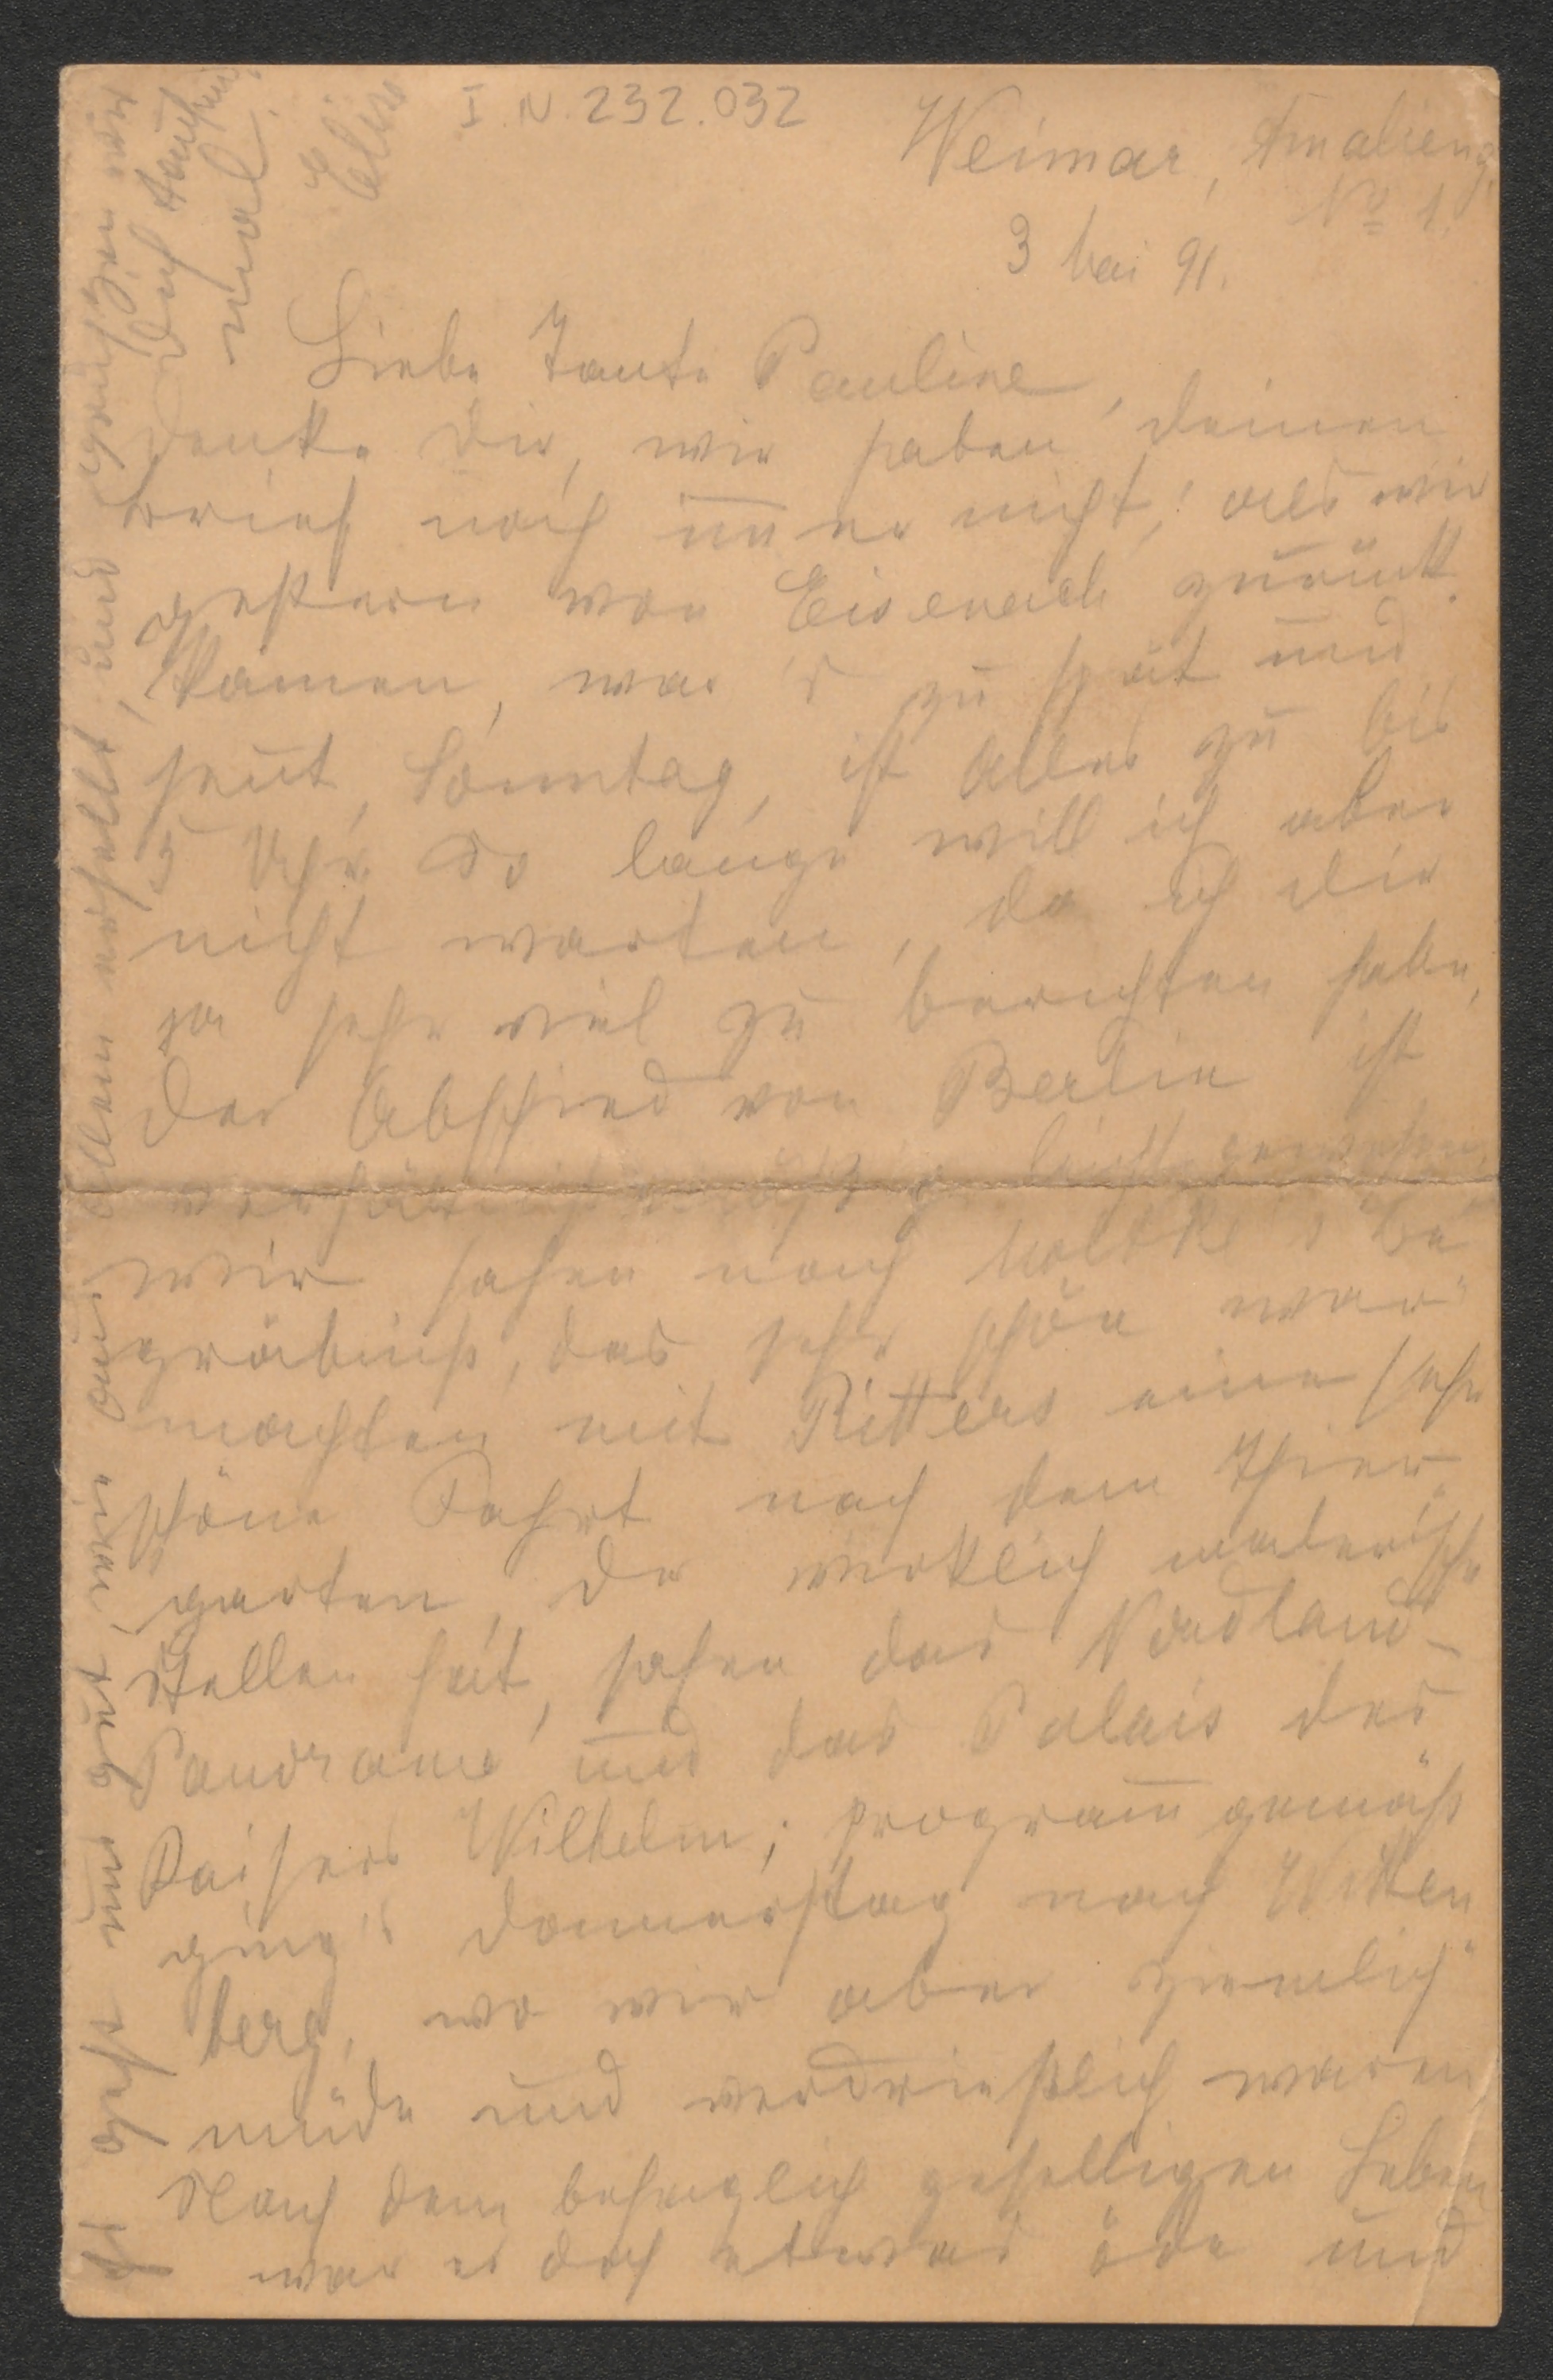 I. N. 232.032
Weimar, Amalieng.
No 1.
3 Mai 91.
Liebe Tante Pauline,
denke Dir, wir haben Deinen
Brief noch immer nicht; als wir
gestern von Eisenach zurück
kamen, war's zu spät und
heut, Sonntag, ist Alles zu bis
5 Uhr. So lange will ich aber
nicht warten, da ich Dir
ja sehr viel zu berichten habe,
Der Abschied von Berlin ist
verhältnißmäßig leicht gewesen,
wir sahen noch Moltke's Be-
gräbniß, das sehr schön war
machten mit Ritters eine sehr
schöne Fahrt nach dem Thier-
garten, der wirklich malerische
Stellen hat, sahen das Nordland-
Panorama und das Palais des
Kaisers Wilhelm; programmgemäß
ging's Donnerstag nach Witten
berg, wo wir aber ziemlich
müde und verdrießlich waren
Nach dem behaglich geselligen Leben
war es doch etwas öde und
Es geht uns gut, wie aus Allem erhellt, und
Dich
mal.
Elise